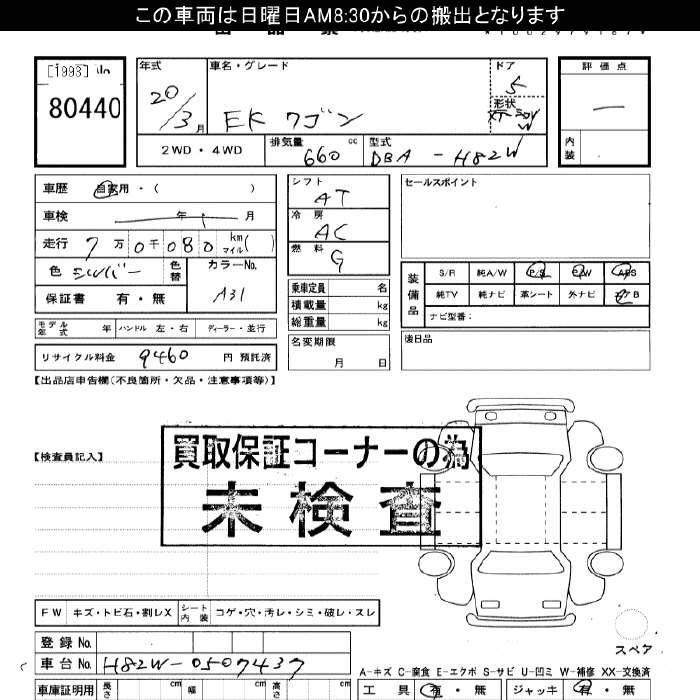 この車両は日曜日AM8:30からの搬出となります
[1993]
80440
年式
20/3月
車名・グレード
EK ワゴン
ドア
5
形状
評価点
内装
2WD・4WD
排気量
660 cc
型式
DBA-H82W
車歴 自家用・( )
車検 年 月
走行 7万0千080 km マイル( )
色 シルバー 色替
カラーNo.
A31
保証書 有・無
シフト
AT
冷房
AC
燃料
G
乗車定員 名
積載量 kg
総重量 kg
名変期限
月 日
セールスポイント
装備品
S/R 純A/W P/S P/W ABS
純TV 純ナビ 革シート 外ナビ エアB
ナビ型番:
後日品
モデル年式 年 ハンドル 左・右 ディーラー・並行
リサイクル料金 9460 円 預託済
【出品店申告欄(不良箇所・欠品・注意事項等)】
【検査員記入】
買取保証コーナーの為
未検査
FW キズ・トビ石・割レX シート内装 コゲ・穴・汚レ・シミ・破レ・スレ
スペア
登録No.
車台No. H82W-0507437
A-キズ C-腐食 E-エクボ S-サビ U-凹ミ W-補修 XX-交換済
車庫証明用 長さ cm 幅 cm 高さ cm
工具 有・無 ジャッキ 有・無